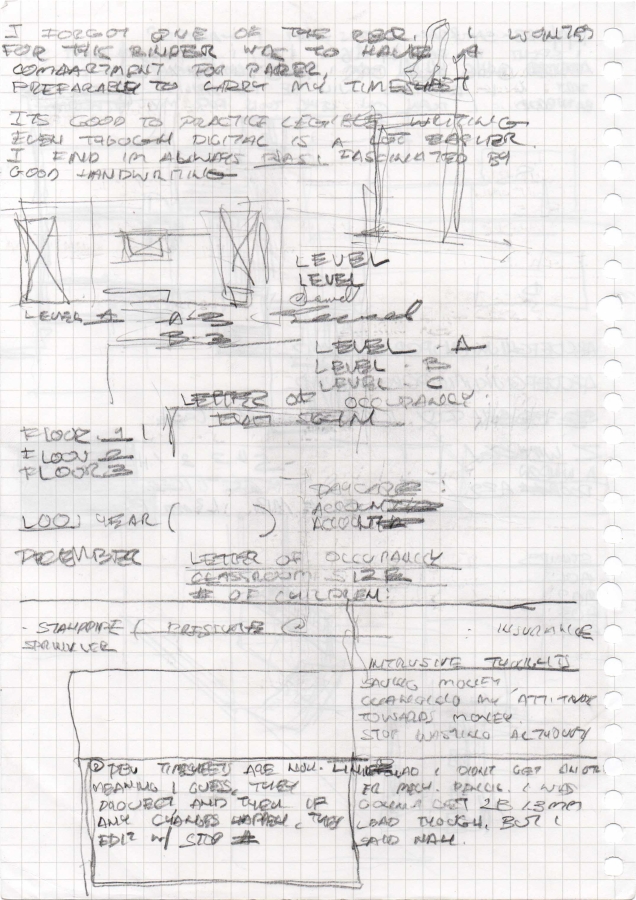 I FORGOT ONE OF THE REQ. I WANTED
FOR THIS BINDER WAS TO HAVE A
COMPARTMENT FOR PAPER,
PREFARABLY TO CARRY MY TIMESHEET
ITS GOOD TO PRACTICE LEGIBLE WRITING
EVEN THOUGH DIGITAL IS A LOT EASIER.
I FIND IM ALWAYS FASCINATED BY
GOOD HANDWRITING
LEVEL
LEVEL
Level
LEVEL 1 A-3
B-3
LEVEL - A
LEVEL - B
LEVEL - C
LETTER OF OCCUPANCY:
FLOOR 1
FLOOR 2
FLOOR 3
DAYCARE:
ACCOUNT
ACCOUNT
YEAR ( )
DECEMBER LETTER OF OCCUPANCY
CLASSROOM SIZE
# OF CHILDREN:
- STANDPIPE ( PRESSURE @ - INSURANCE
SPRINKLER
INTRUSIVE THOUGHTS
SAVING MONEY,
CHANGING MY ATTITUDE
TOWARDS MONEY.
STOP WASTING
TIMESHEETS ARE NON-
MEANING I GUESS, THEY
PROJECT AND THEN IF
ANY CHANGES HAPPEN, THEY
EDIT W/ STOP #
I DIDNT GET ANOTH
ER MECH. PENCIL. I WAS
GONNA GET 2B 1.3MM
LEAD THOUGH, BUT I
SAID NAH.